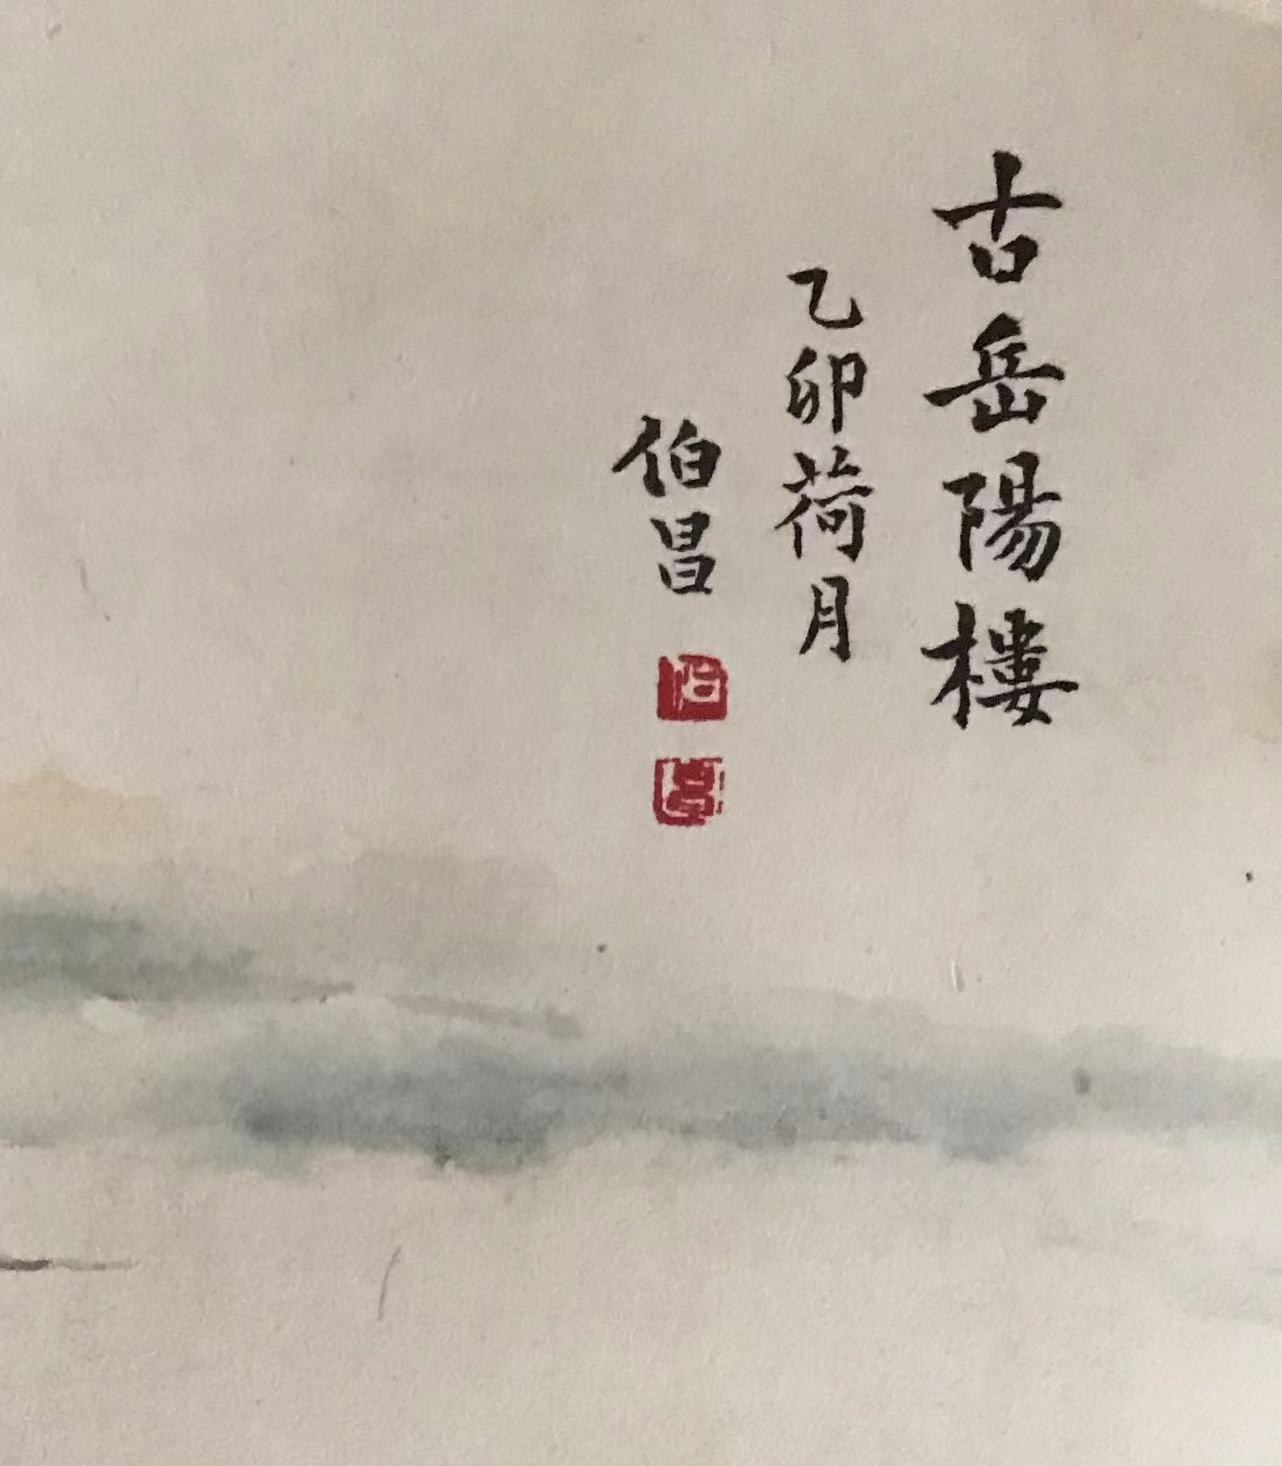 古岳陽樓
乙卯荷月
伯昌
伯
昌